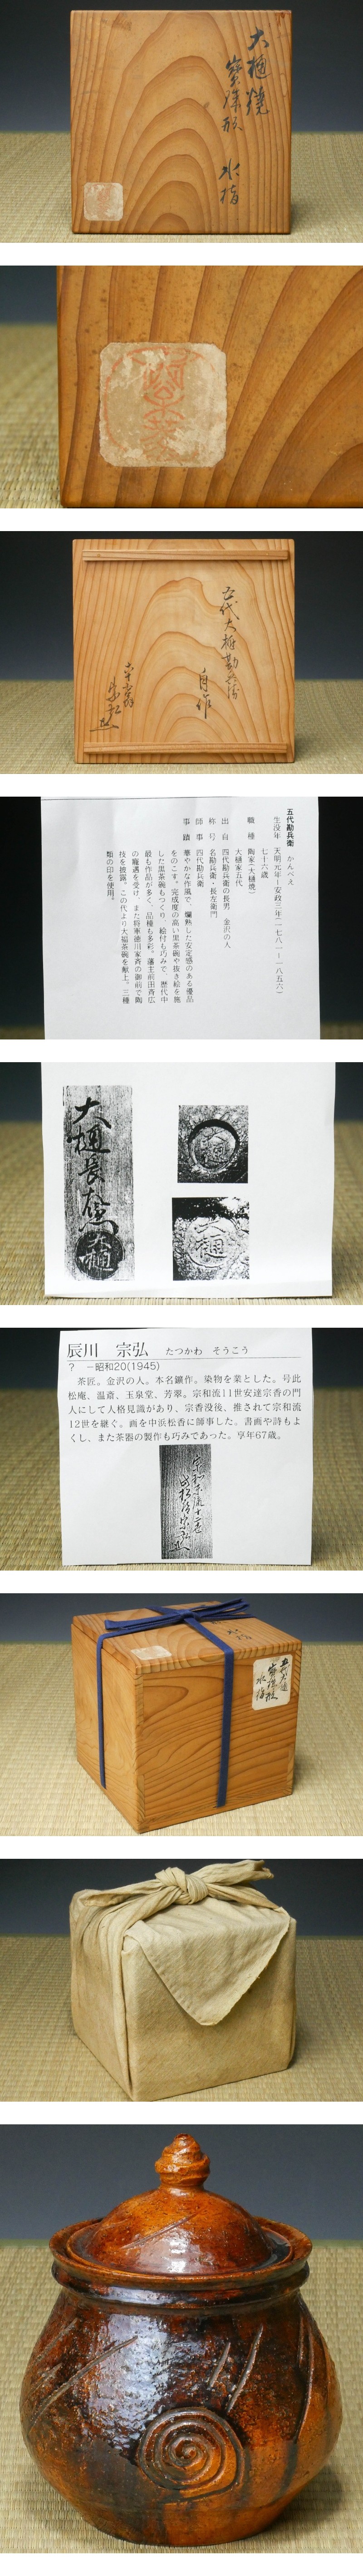 大樋焼
寳珠形 水指
五代大樋勘兵衛
自作
五代勘兵衛 かんべえ
生没年 天明元年―安政三年(一七八一―一八五六)
七十六歳
職種 陶家(大樋焼)
大樋家五代
出自 四代勘兵衛の長男 金沢の人
称号 名勘兵衛・長左衛門
師事 四代勘兵衛
事蹟 華やかな作風で、爛熟した安定感のある優品
をのこす。完成度の高い黒茶碗や抜き絵を施
した黒茶碗もつくり、絵付も巧みで、歴代中
最も作品が多く、品種も多彩。藩主前田斉広
の寵遇を受け、また将軍徳川家斉の御前で陶
技を披露。この代より大福茶碗を献上。三種
類の印を使用。
大樋長左衛門
大樋
大樋
大樋
辰川 宗弘 たつかわ そうこう
? −昭和20(1945)
茶匠。金沢の人。本名鑛作。染物を業とした。号此
松庵、温斎、玉泉堂、芳翠。宗和流11世安達宗香の門
人にして人格見識があり、宗香歿後、推されて宗和流
12世を継ぐ。画を中浜松香に師事した。書画や詩もよ
くし、また茶器の製作も巧みであった。享年67歳。
宗和末流十二世
五代大樋
寳珠形
水指